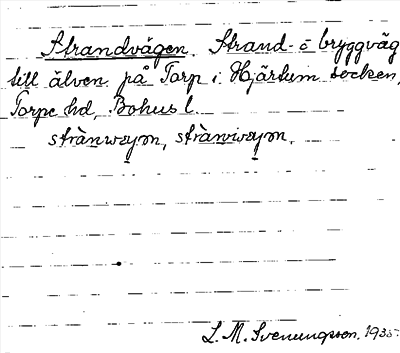 Strandvägen. Strand- o bryggväg
till älven på Torp i Hjärtum socken,
Torpe hd, Bohusl.
strànwæyen, strànwæyen.
L. M. Svenungsson. 1935.